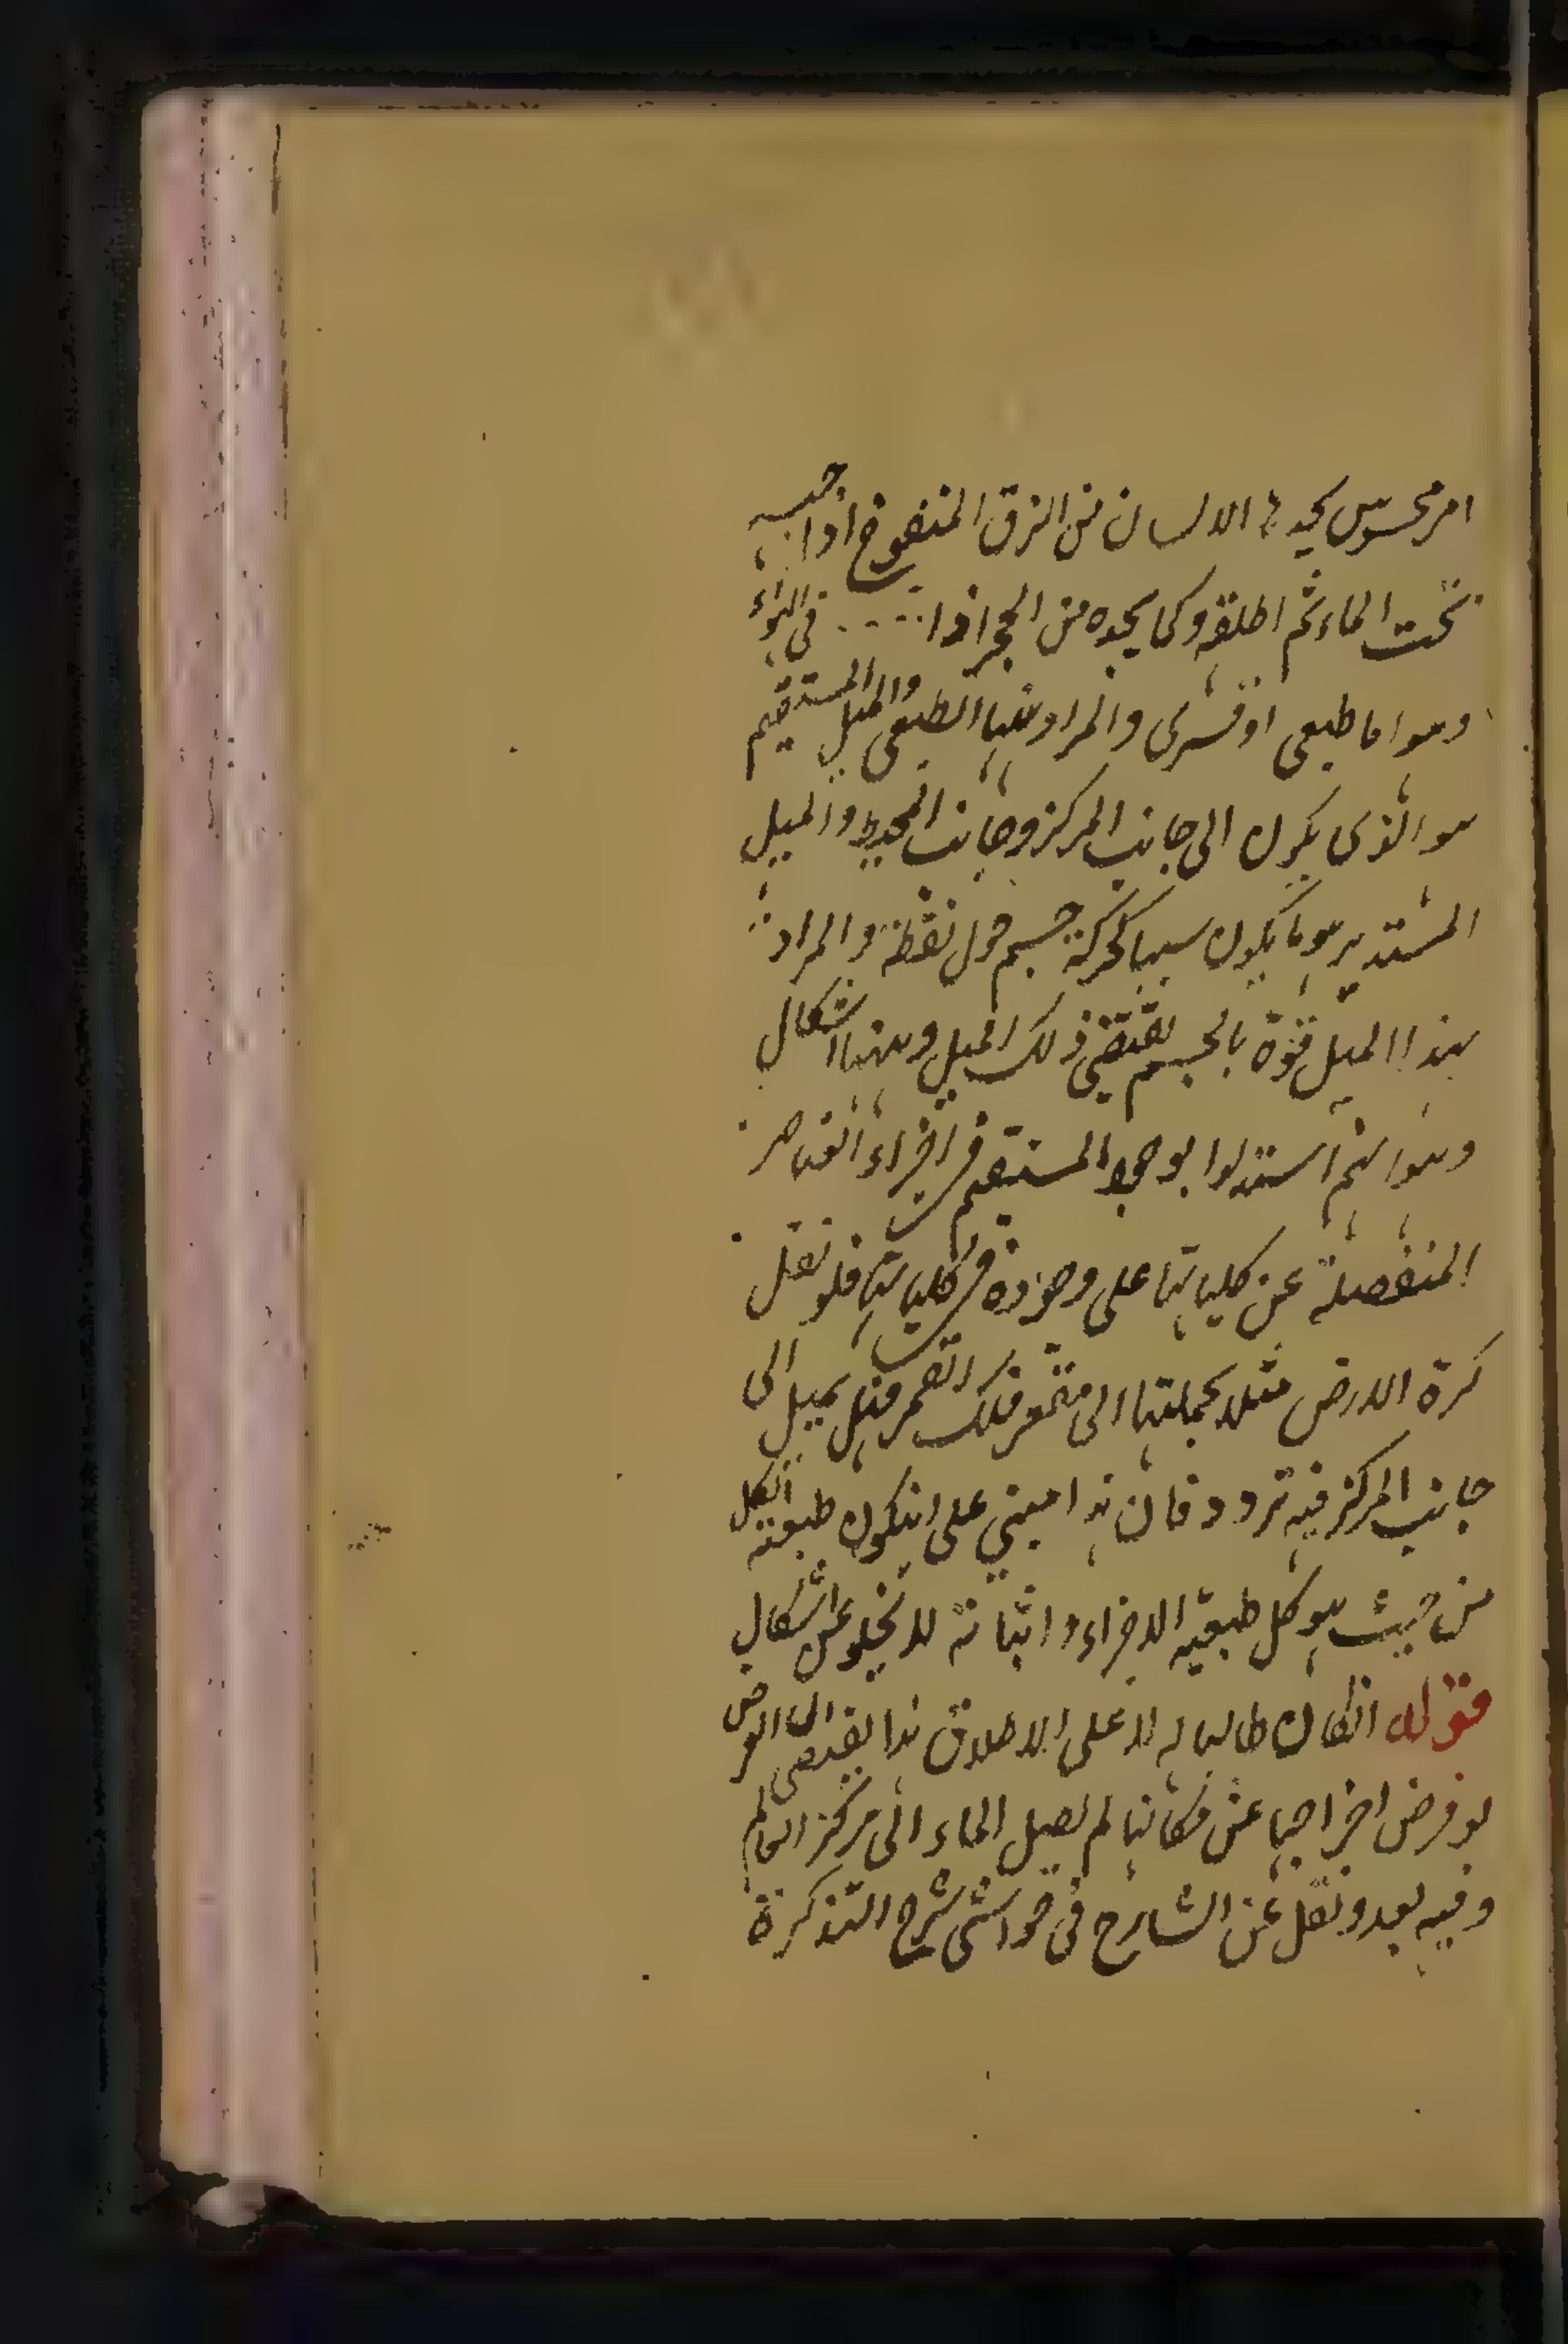 امر محسوس يجدها الانسان من الزق المنفوخ اذا حبسه
تحت الماء ثم اطلقه وكما يجده من الحجر اذا .... في الهواء
وهو اما طبعى او قسرى والمراد ههنا الطبعى والميل المستقيم
هو الذى يكون الى جانب المركز وجانب المحيط والميل
المستدير هو ما يكون سببا لحركة جسم حول نقطة والمراد
بهذا الميل قوة بالجسم يقتضى ذلك الميل وههنا اشكال
وهو انهم استدلوا بوجود المستقيم فى اجزاء العناصر
المنفصلة عن كلياتها على وجوده فى كلياتها فلو نقل
كرة الارض مثلا بجملتها الى مقعر فلك القمر فهل يميل الى
جانب المركز فيه تردد فان هذا مبنى على ان يكون طبيعة الكل
من حيث هو كل طبيعة الاجزاء واثباته لا يخلو عن اشكال
قوله ان كان طالبا له لا على الاطلاق هذا يقتضى ان الارض
لو فرض اخراجها عن مكانها لم يصل الماء الى مركز العالم
وفيه بعد ونقل عن الشارح فى حواشى شرح التذكرة